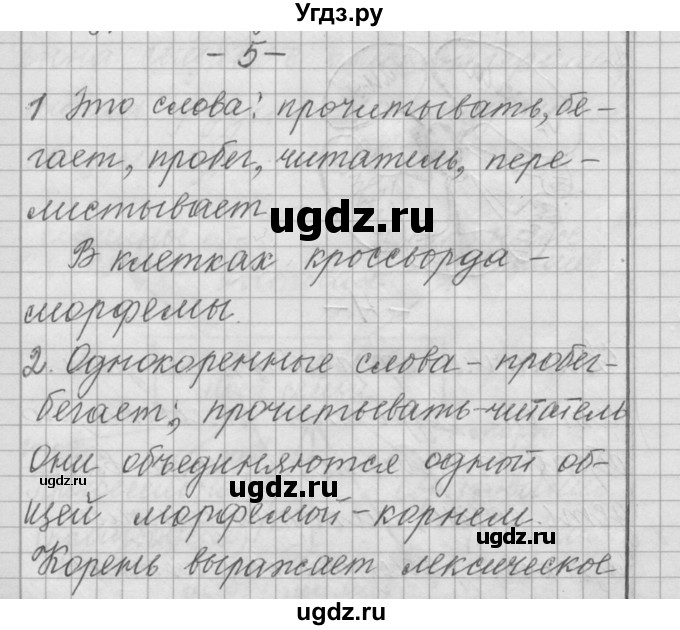 Угдз.ру
- 5 -
1 Это слова: прочитывать, бе-
гает, пробег, читатель, пере-
листывает
ugdz.ru
В клетках кроссворда -
морфемы.
2. Однокоренные слова - пробег-
бегает; прочитывать-читатель
Они объединяются одной об-
ugdz.ru
ugdz.ru
ugdz.ru
щей морфемой - корнем.
Корень выражает лексическое
ugdz.ru